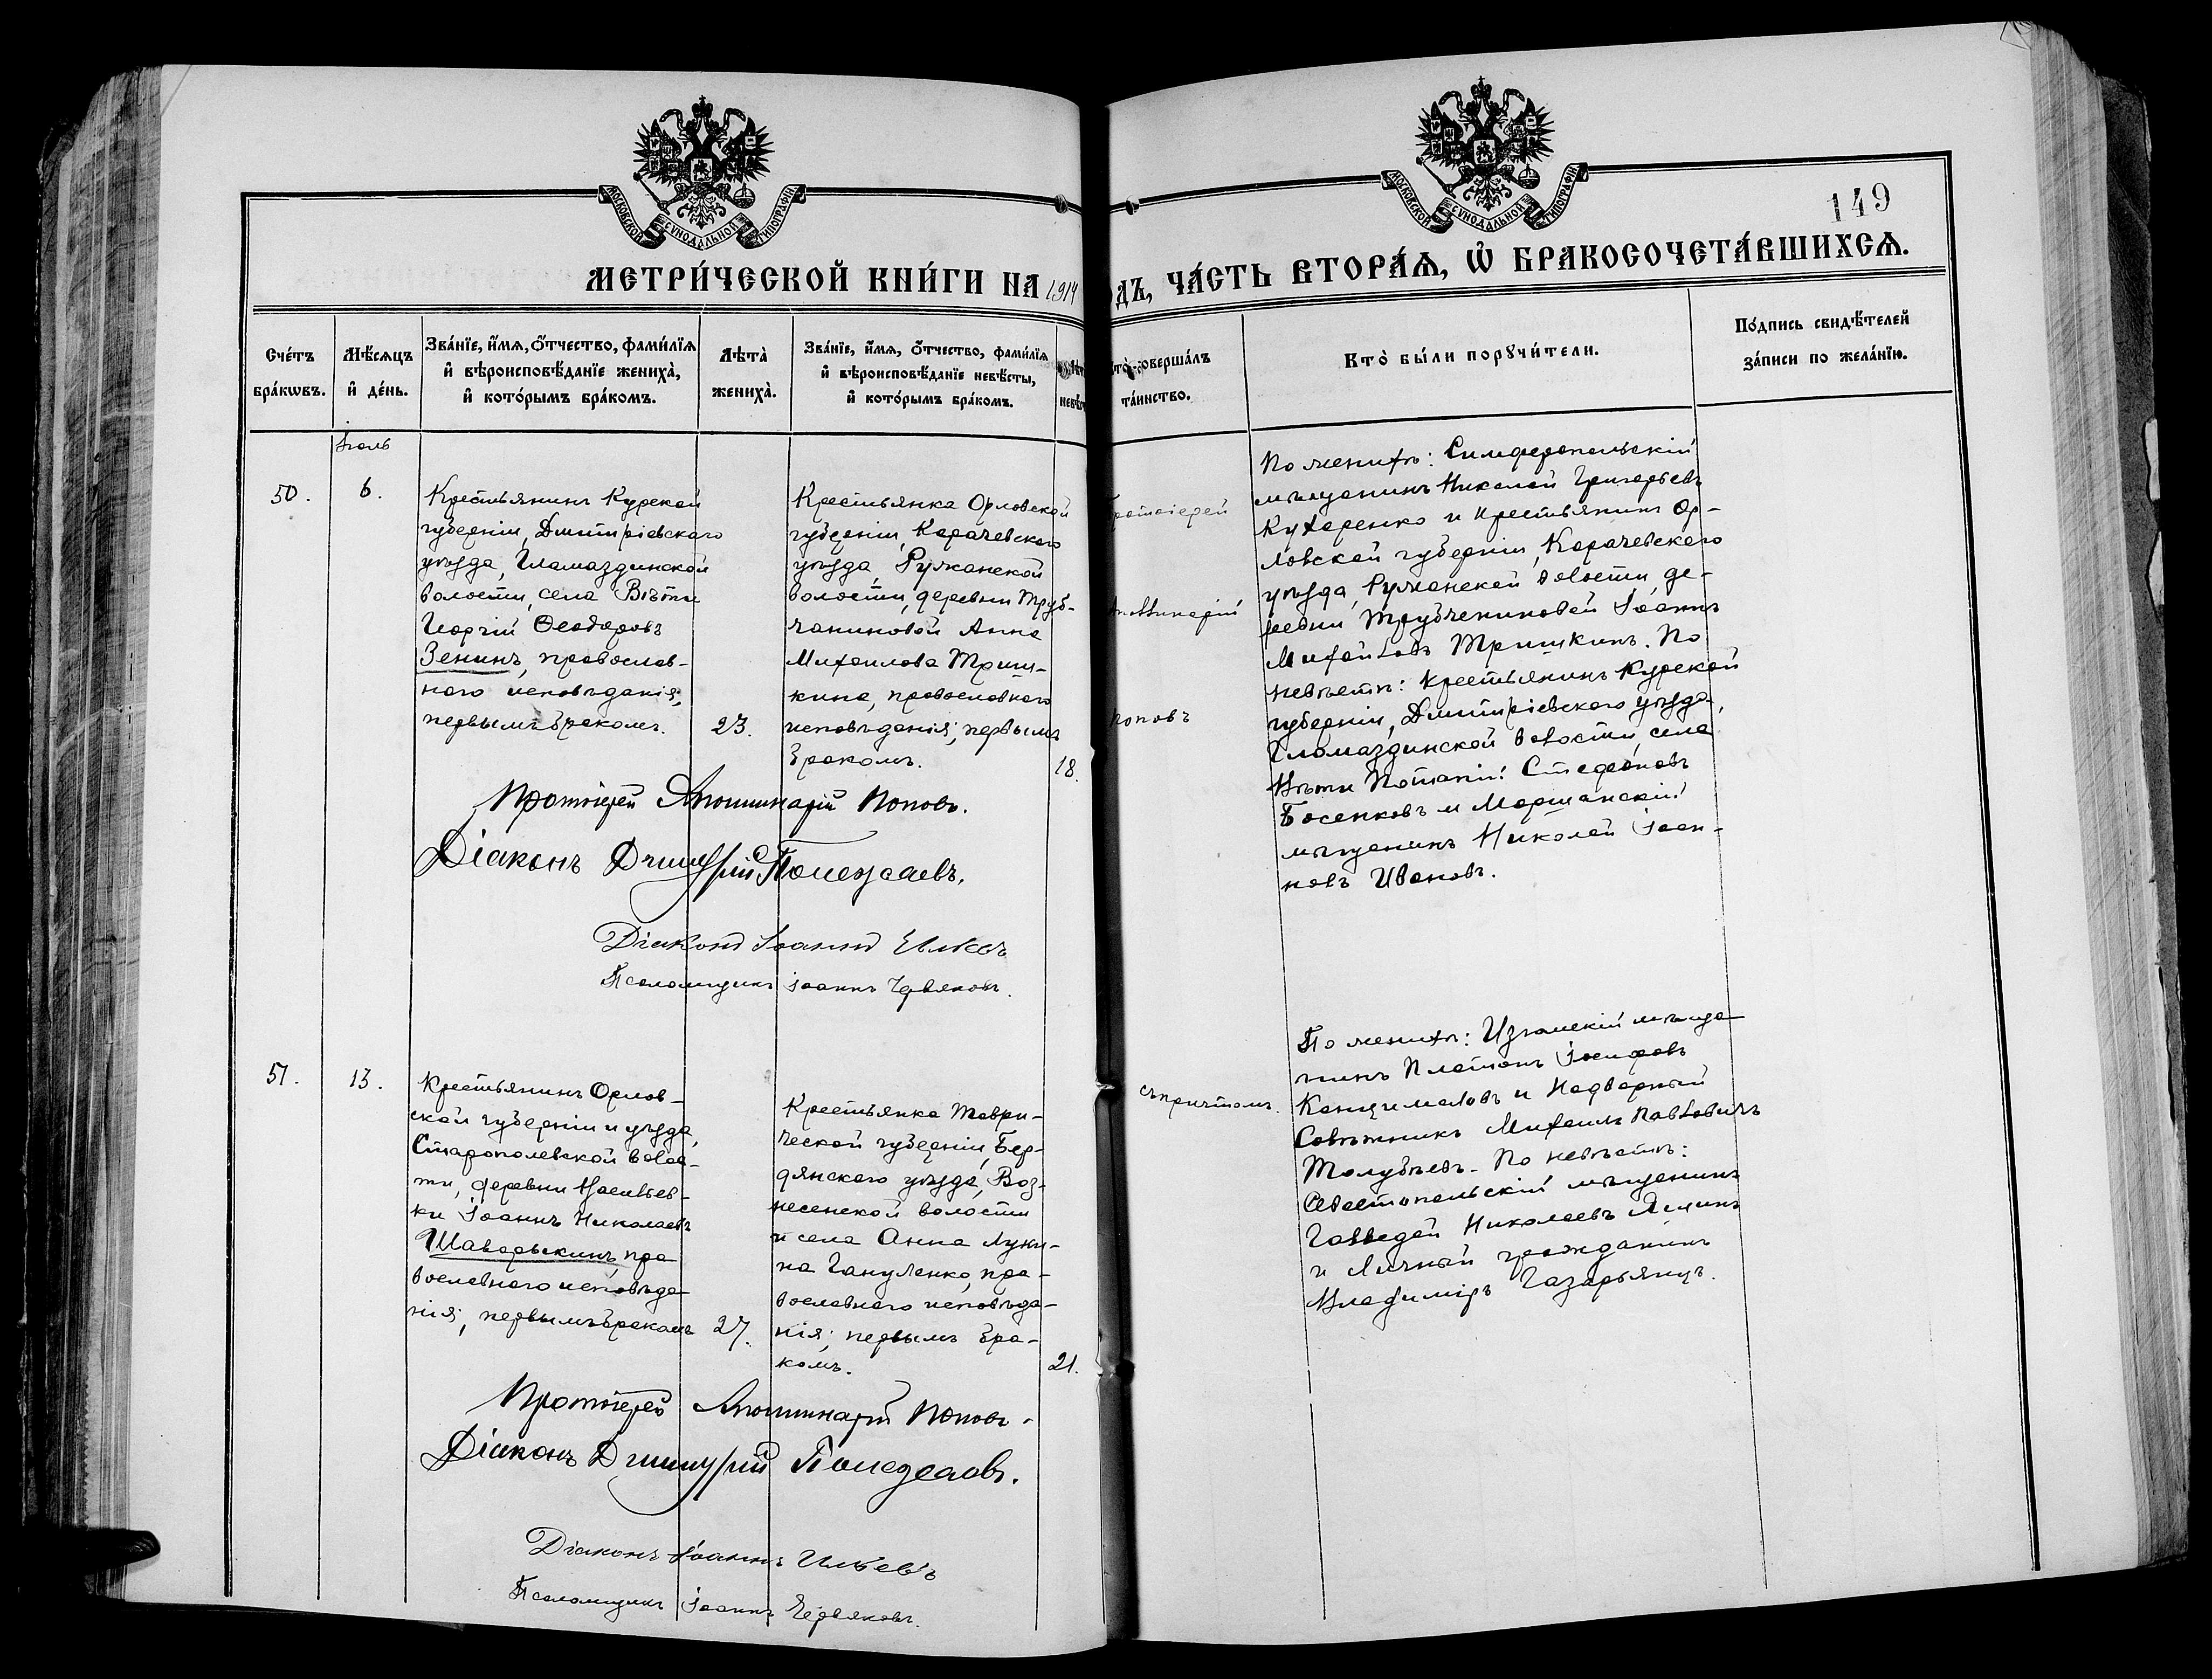 МОСКОВСКОЙ СѴНОДАЛЬНОЙ ТИПОГРАФІИ
МОСКОВСКОЙ СѴНОДАЛЬНОЙ ТИПОГРАФІИ
149
МЕТРИ́ЧЕСКОЙ КНИ́ГИ НА 1914
ДЪ, ЧА́СТЬ ВТОРА́Ѧ, Ѡ҆ БРАКОСОЧЕТА́ВШИХСѦ.
Сче́тъ бра́кѡвъ.
Мѣ́сѧцъ и҆ де́нь.
Зва́нїе, и҆́мѧ, ѻ҆́тчество, фами́лїѧ
и҆ вѣроисповѣ́данїе жениха̀,
и҆ кото́рымъ бра́комъ.
Лѣта̀ жениха̀.
Зва́нїе, и҆́мѧ, ѻ҆́тчество, фами́лїѧ
и҆ вѣроисповѣ́данїе невѣ́сты,
и҆ кото́рымъ бра́комъ.
совершáлъ
та́инство.
Кто̀ бы́ли порꙋчи́тели.
По́дпись свидѣ́телей
за́писи по жела́нїю.
Іюль
50.
6.
Крестьянинъ Курской
губерніи, Дмитріевскаго
уѣзда, Гламаздинской
волости, села Вѣти
Георгій Ѳеодоровъ
Зенинъ, православ-
наго исповѣданія,
первымъ бракомъ.
23.
Крестьянка Орловской
губерніи, Карачевскаго
уѣзда, Ружанской
волости, деревни Труб-
чаниновой Анна
Михаилова Триш-
кина, православнаго
исповѣданія, первымъ
бракомъ.
18.
Протоіерей
Аполлинарій
Поповъ
По женихѣ: Симферопольскій
мѣщанинъ Николай Григорьевъ
Кухаренко и крестьянинъ Ор-
ловской губерніи, Карачевскаго
уѣзда, Ружанской волости, де-
ревни Трубчениновой Іоаннъ
Михайловъ Тришкинъ. По
невѣстѣ: крестьянинъ Курской
губерніи, Дмитріевскаго уѣзда,
Гломаздинской волости, села
Вѣти Потапій Стефановъ
Босенковъ и Моршанскій
мѣщанинъ Николай Іоан-
новъ Ивановъ.
Протоіерей Аполлинарій Поповъ.
Діаконъ Димитрій Полежаевъ.
Діаконъ Іоаннъ
Псаломщикъ Іоаннъ Червяковъ.
51.
13.
Крестьянинъ Орлов-
ской губерніи и уѣзда,
Старопольской волос-
ти, деревни Васильев-
ки Іоаннъ Николаевъ
Шаварыкинъ, пра
вославнаго исповѣда
нія, первымъ бракомъ
27.
Крестьянка Таври-
ческой губерніи, Бер-
дянскаго уѣзда, Воз-
несенской волости
и села Анна Луки-
на Гануленко, пра-
вославнаго исповѣда-
нія; первымъ бра-
комъ.
21.
съ причтомъ.
По женихѣ: Изюмскій мѣща
нинъ Платонъ Іосифовъ
и Надворный
Совѣтникъ Михаилъ Павловичъ
Толубѣевъ. По невѣстѣ:
Севастопольскій мѣщанинъ
Николаевъ
и Личный гражданинъ
Владиміръ Газарьянцъ.
Протоіерей Аполлинарій Поповъ.
Діаконъ Димитрій Полежаевъ.
Діаконъ Іоаннъ Ильевъ
Псаломщикъ Іоаннъ Червяковъ.